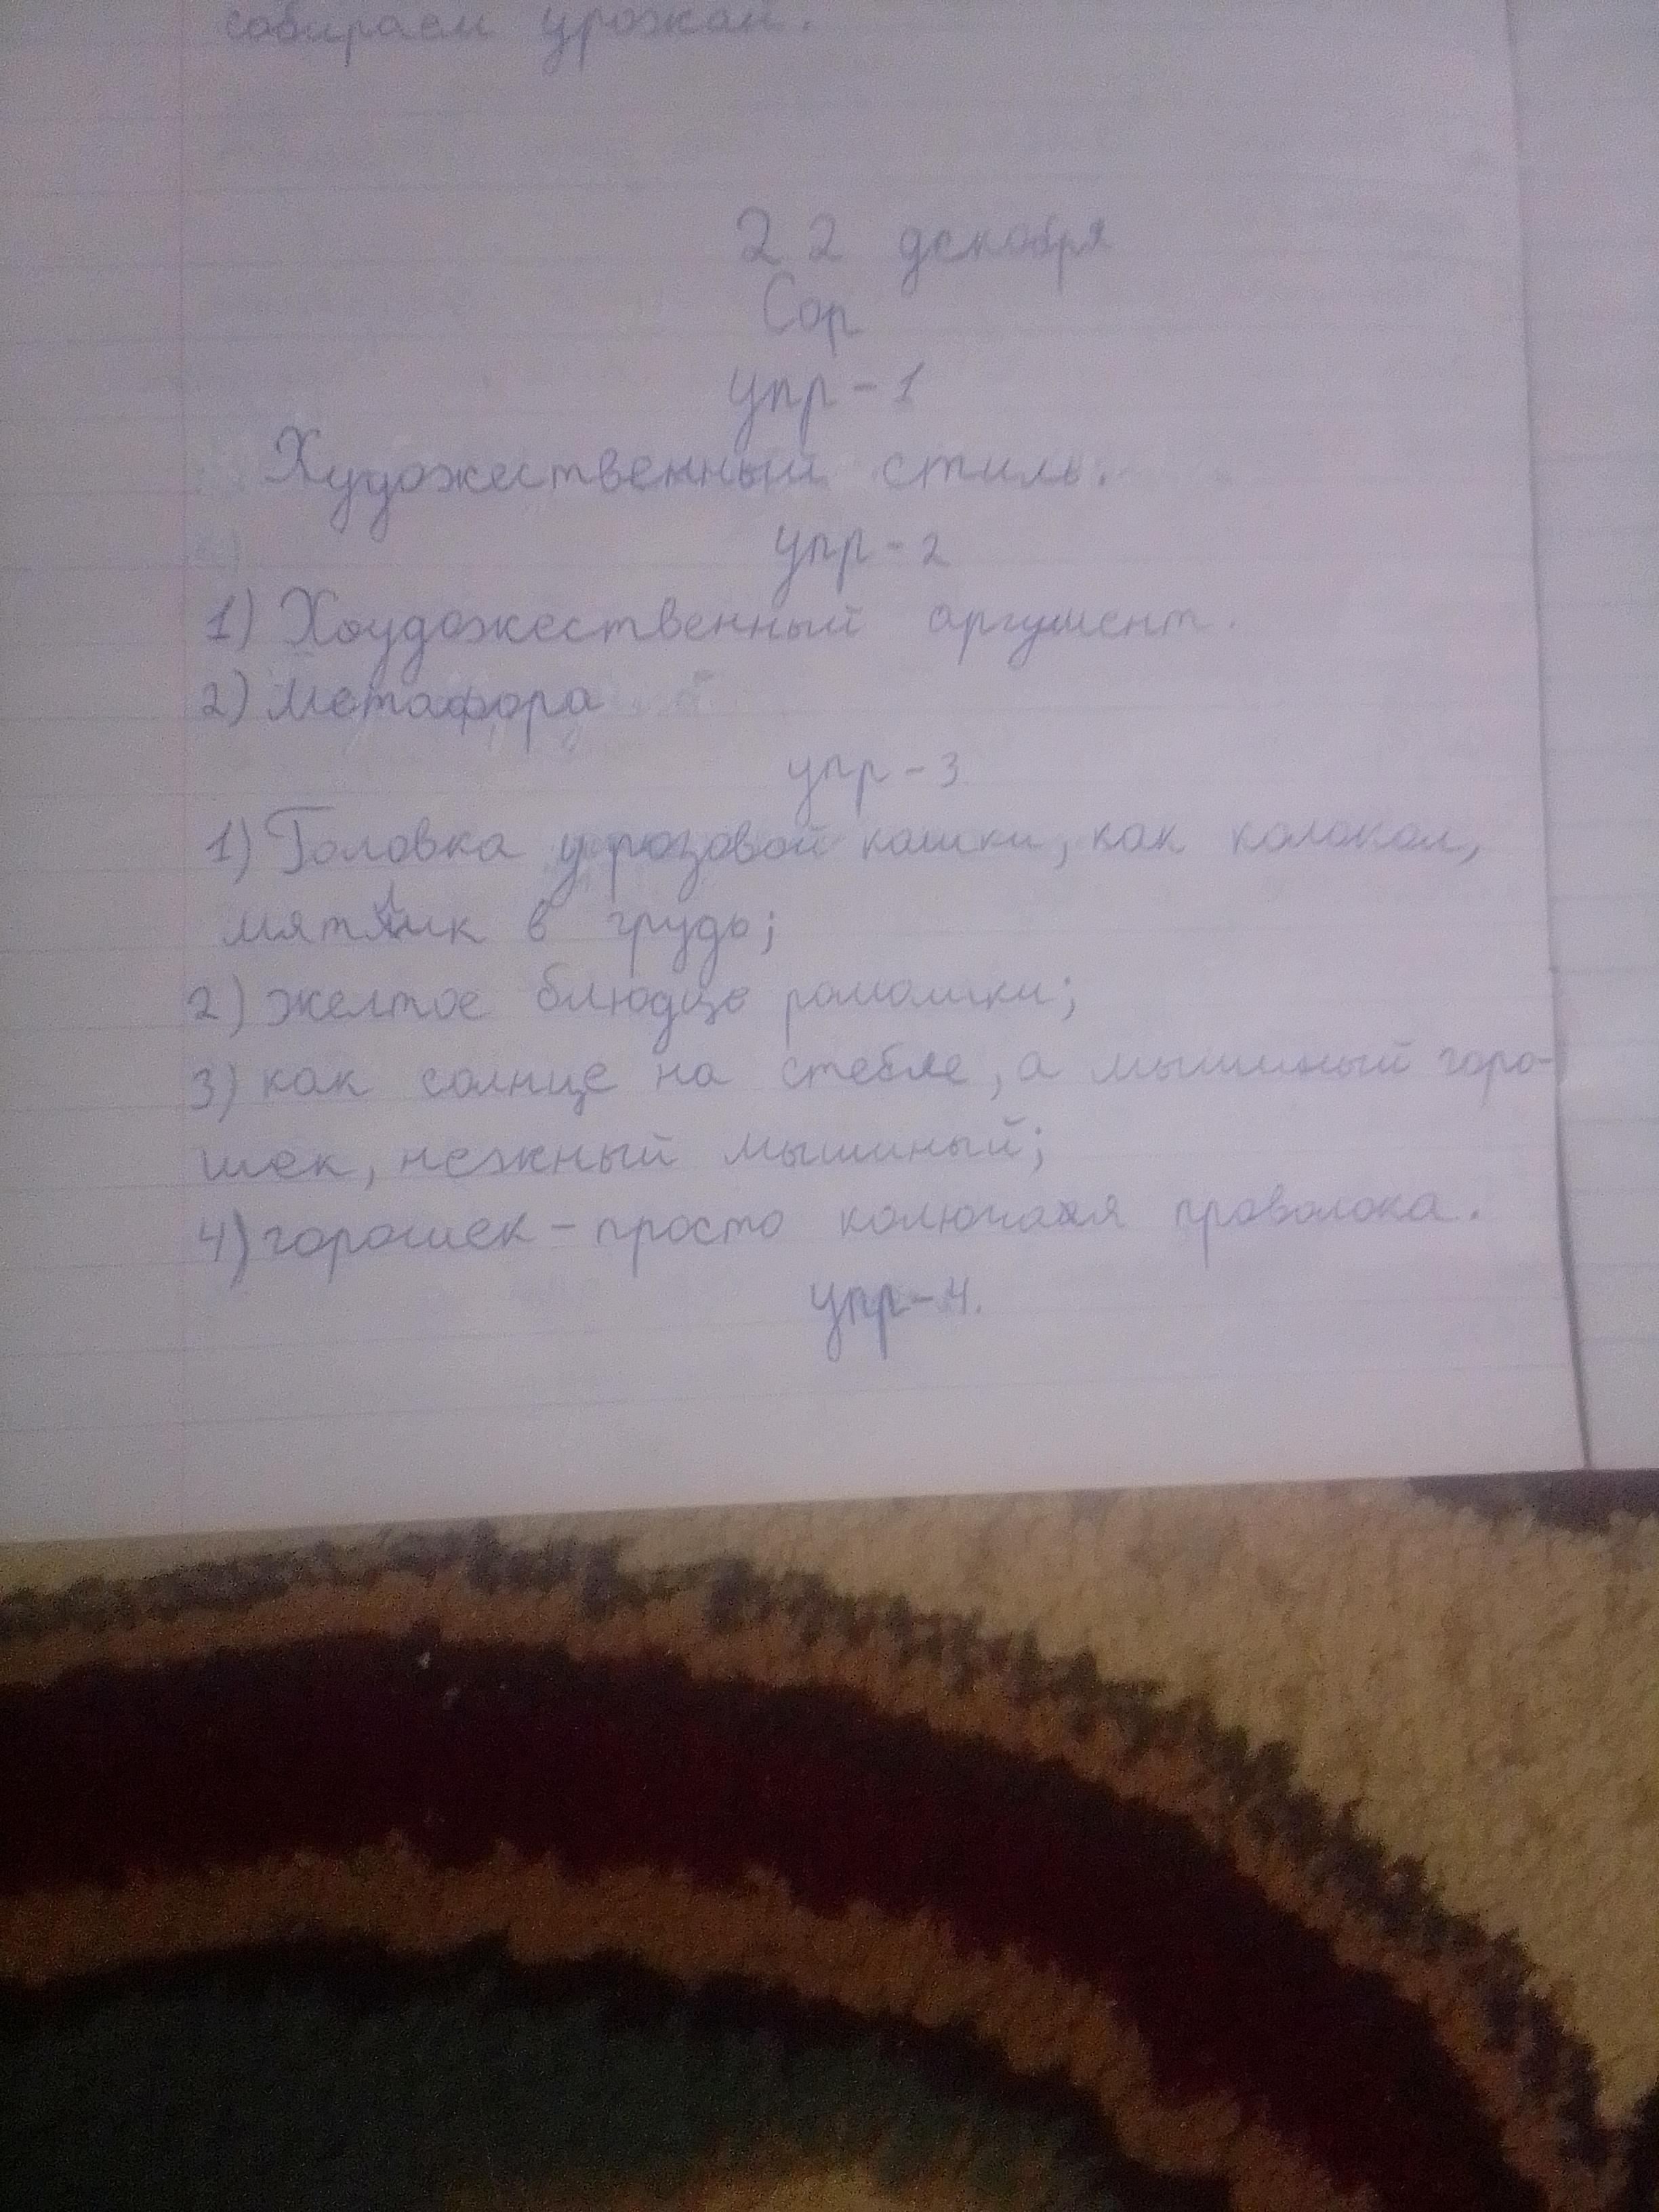 собираем урожай.
22 декабря
Сор
упр-1
Художественный стиль.
упр-2
1) Хоудожественный аргумент.
2) Метафора
упр-3
1) Головка у розовой кашки, как колокол,
мятлик в грудь;
2) желтое блюдце ромашки;
3) как солнце на стебле, а мышиный горо-
шек, нежный мышиный;
4) горошек - просто колючая проволока.
упр-4.